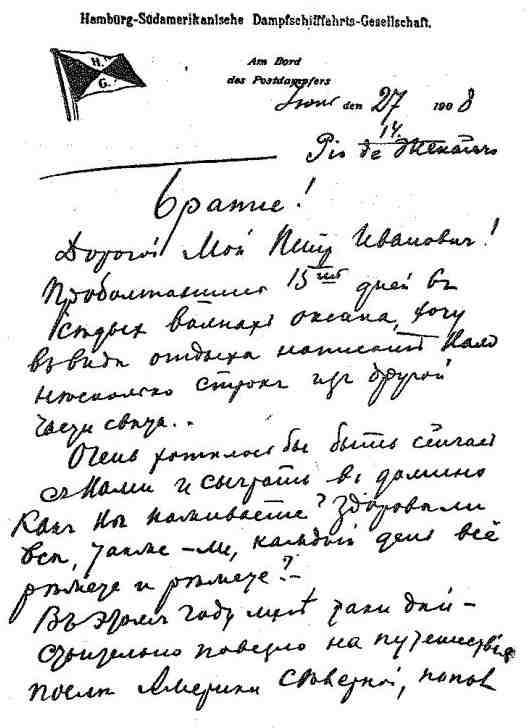 Hamburg-Südamerikanische Dampfschifffahrts-Gesellschaft.
H.
G.
Am Bord
des Postdampfers
den 27 1908
14.
Rio de
братие!
Дорогой Мой Петр Иванович!
Проболтавшись 15 дней въ
волнахъ океана, хочу
въ виде отдыха написать Вамъ
несколько строкъ изъ другой
части света..
Очень хотелось бы быть сейчасъ
съ Вами и сыграть въ домино
Какъ Вы поживаете? Здоровы ли
все, также-ли, каждый день всё
режете и режете?-
Въ этомъ году мне таки дей-
ствительно повезло на путешествія
после Америки Северной, попов